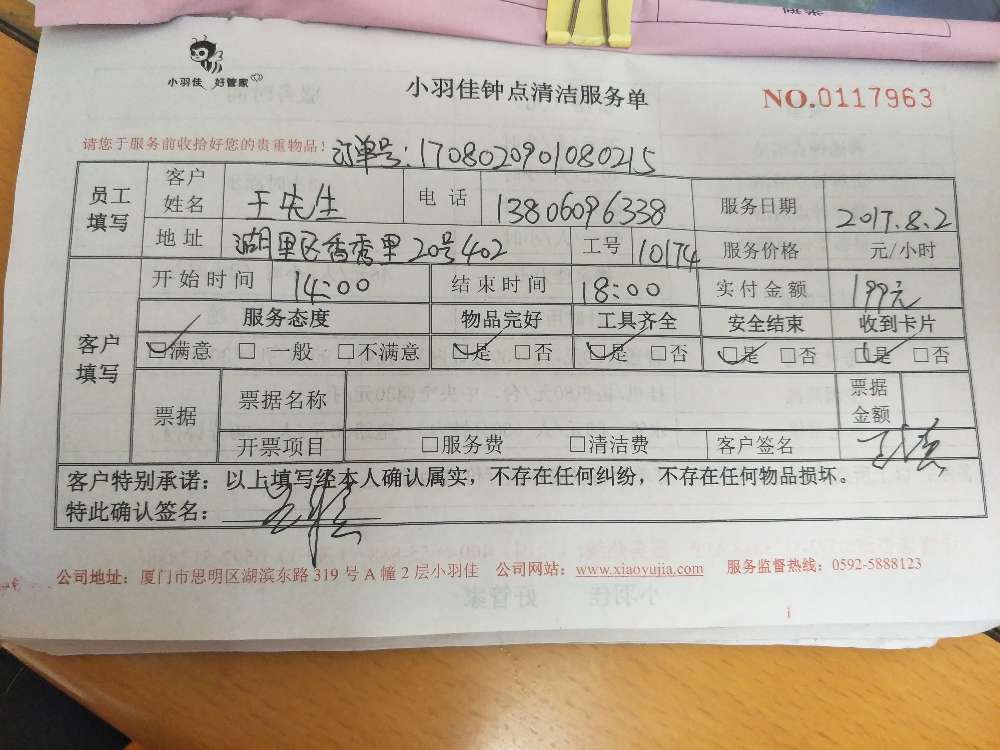 小羽佳 好管家
小羽佳钟点清洁服务单
NO.0117963
请您于服务前收拾好您的贵重物品!
订单号:1708020901080215
员工填写 客户姓名 王先生 电话 13806096338 服务日期 2017.8.2
地址 湖里区香秀里20号402 工号 10174 服务价格 元/小时
客户填写 开始时间 14:00 结束时间 18:00 实付金额 199元
服务态度 物品完好 工具齐全 安全结束 收到卡片
☑满意 □一般 □不满意 ☑是 □否 ☑是 □否 ☑是 □否 ☑是 □否
票据 票据名称 票据金额
开票项目 □服务费 □清洁费 客户签名
客户特别承诺:以上填写经本人确认属实,不存在任何纠纷,不存在任何物品损坏。
特此确认签名:
公司地址:厦门市思明区湖滨东路319号A幢2层小羽佳 公司网站:www.xiaoyujia.com 服务监督热线:0592-5888123